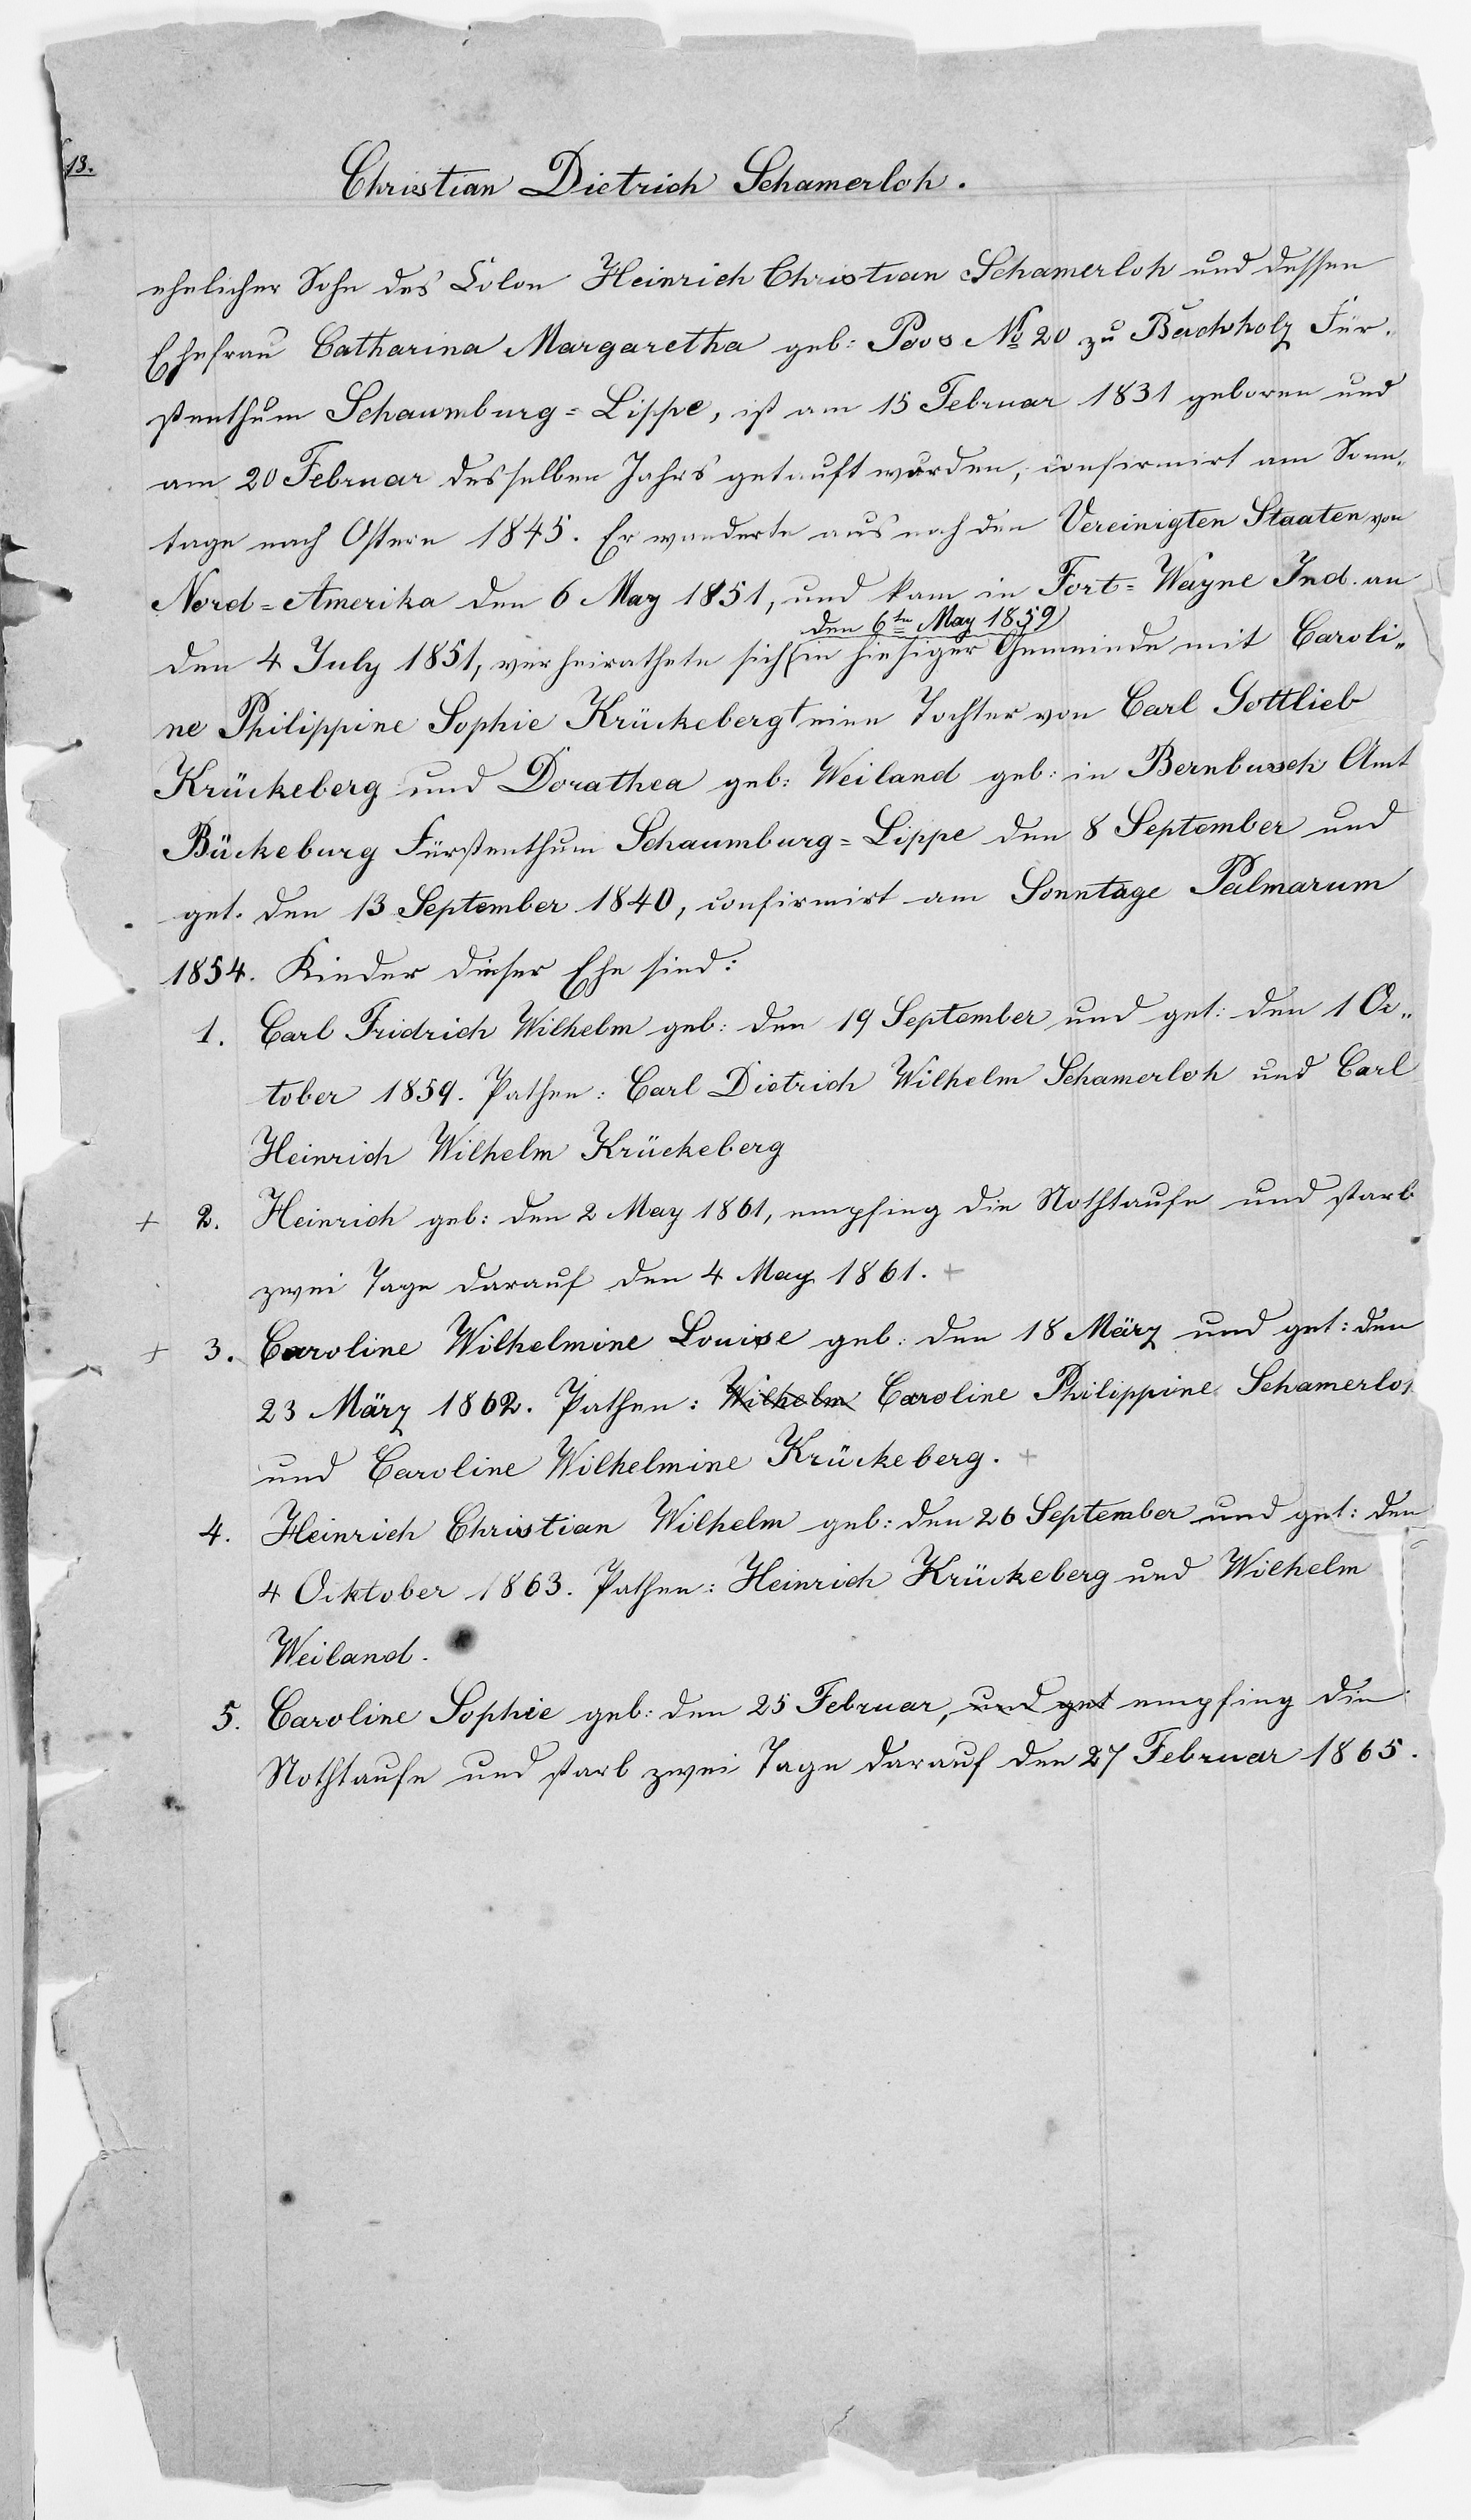 13.
Christian Dietrich Schamerloh.
ehelicher Sohn des Colon Heinrich Christian Schamerloh und dessen
Ehefrau Catharina Margaretha geb: Poos № 20 zu Buchholz Für-
stenthum Schaumburg=Lippe, ist am 15 Februar 1831 geboren und
am 20 Februar desselben Jahrs getauft worden, confirmirt am Sonn-
tage nach Ostern 1845. Er wanderte aus nach den Vereinigten Staaten von
Nord=Amerika den 6 May 1851, und kam in Fort=Wayne Ind. an
den 6ten May 1859
den 4 July 1851, verheirathete sich in hiesiger Gemeinde mit Caroli„
ne Philippine Sophie Krückeberg eine Tochter von Carl Gottlieb
Krückeberg und Dorathea geb: Weiland geb: in Bernbusch Amt
Bückeburg Fürstenthum Schaumburg=Lippe den 8 September und
get. den 13 September 1840, confirmirt am Sonntage Palmarum
1854. Kinder dieser Ehe sind:
1. Carl Fridrich Wilhelm geb: den 19 September und get: den 1 Oc„
tober 1859. Pathen: Carl Dietrich Wilhelm Schamerloh und Carl
Heinrich Wilhelm Krückeberg
+ 2. Heinrich geb: den 2 May 1861, empfing die Nothtaufe und starb
zwei Tage darauf den 4 May 1861. +
+ 3. Caroline Wilhelmine Louise geb: den 18 März und get: den
23 März 1862. Pathen: Wilhelm Caroline Philippine Schamerloh
und Caroline Wilhelmine Krückeberg. +
4. Heinrich Christian Wilhelm geb: den 26 September und get: den
4 Ocktober 1863. Pathen: Heinrich Krückeberg und Wilhelm
Weiland.
5. Caroline Sophie geb: den 25 Februar, und get empfing die
Nothtaufe und starb zwei Tage darauf den 27 Februar 1865.